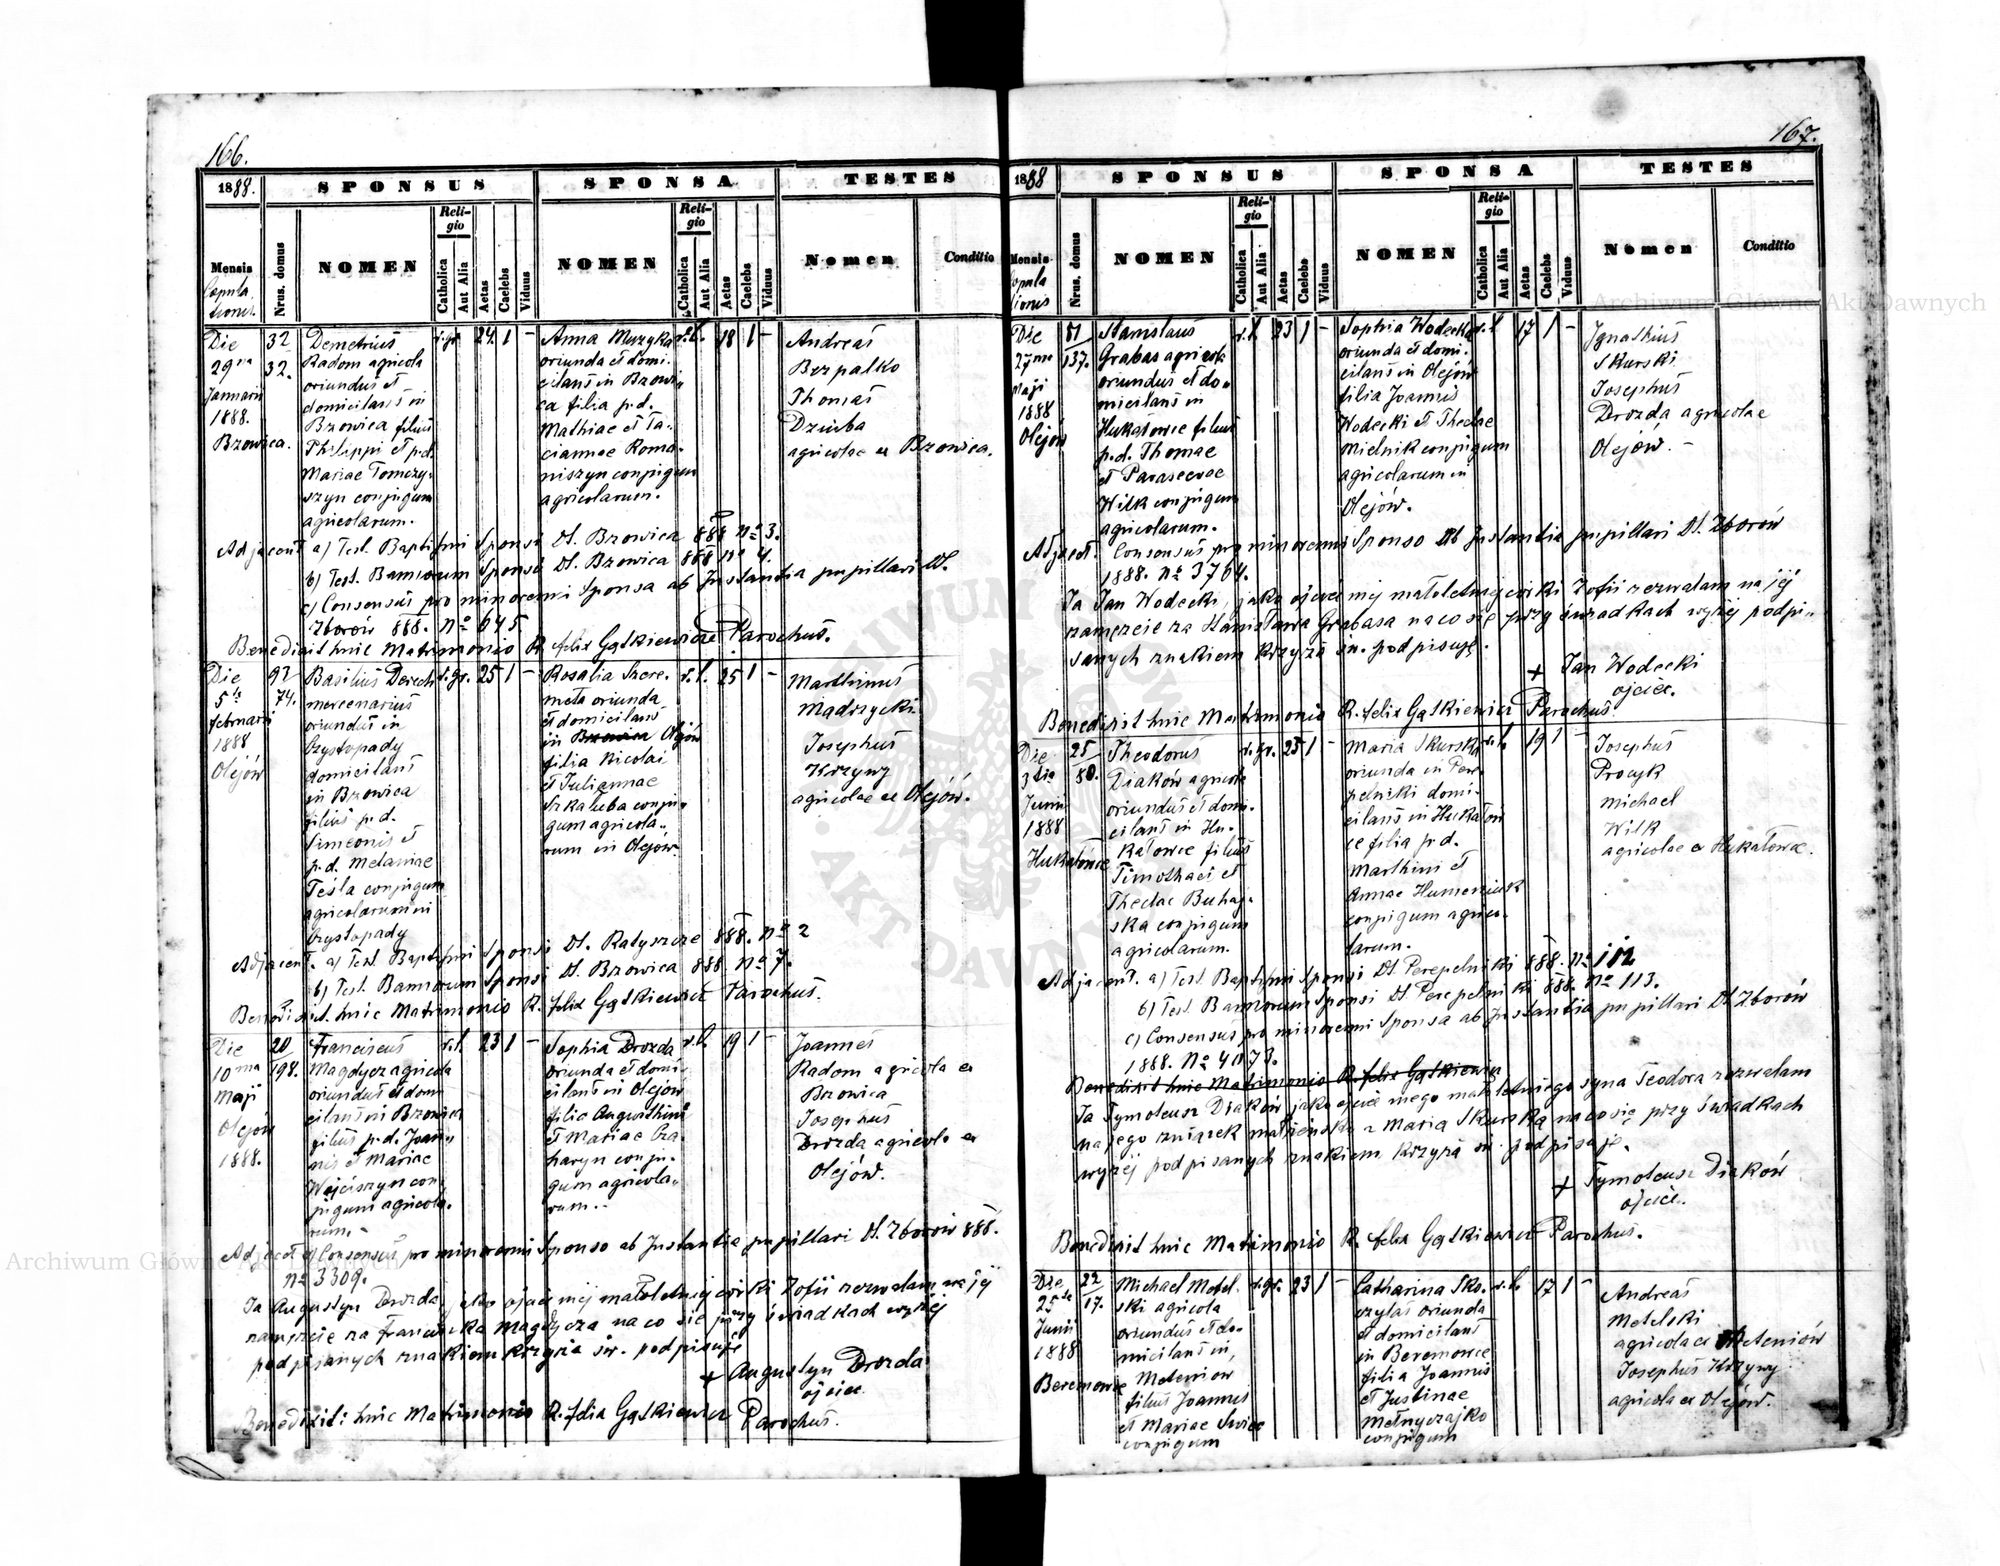 166.
1888.
SPONSUS
SPONSA
TESTES
Mensis
Copula
tionis.
Nrus. domus
NOMEN
Religio
Catholica
Aut Alia
Aetas
Caelebs
Viduus
NOMEN
Religio
Catholica
Aut Alia
Aetas
Caelebs
Viduus
Nomen
Conditio
Die
29na
Januarii
1888.
Brzowica.
32
32.
Demetrius
Radom agricola
oriundus et
domicilans in
Bzowica filius
Philippi et p.d.
Mariae Tomczy-
szyn conjugum
agricolarum.
r.gr. 24 1 -
Anna Muzyka
oriunda et domi-
cilans in Bzowi-
ca filia p.d.
Mathiae et Ta-
ciannae Roma-
niszyn conjugum
agricolarum.
r.l. 18 1 -
Andreas
Bezpalko
Thomas
Dziuba
agricolae ex Bzowica.
Adjacent a) Test. Baptismi Sponsi Dt. Bzowica 888 No 3.
b) Test. Bannorum Sponsi Dt. Bzowica 888 No 4.
c) Consensus pro minorenni Sponsa ab Instantia pupillari Dt.
Zborów 888. No 645.
Benedixit huic Matrimonio R. Felix Gątkiewicz Parochus.
Die
5ta
Februarii
1888
Olejów
92
74.
Basilius Derech
mercenarius
oriundus in
Czystopady
domicilans
in Bzowica
filius p.d.
Simeonis et
p.d. Melaniae
Tesla conjugum
agricolarum in
Czystopady
r.gr. 25 1 -
Rosalia Szere-
meta oriunda
et domicilans
in Bzowica Olejów
filia Nicolai
et Juliannae
Szkatuba conju-
gum agricola-
rum in Olejów.
r.l. 25 1 -
Marthinus
Mądrzycki
Josephus
Krzywy
agricolae ex Olejów.
Adjacent. a) Test Baptismi Sponsi Dt. Ratyszcze 888. No 2
b) Test. Bannorum Sponsi Dt. Bzowica 888 No 7.
Benedixit huic Matrimonio R. Felix Gątkiewicz Parochus.
Die
10ma
Maji
Olejów
1888.
20
198.
Franciscus
Magdycz agricola
oriundus et domi
cilans in Bzowica
filius p.d. Joan-
nis et Mariae
Wójciszyn con-
jugum agricola-
rum.
r.l. 23 1 -
Sophia Drozda
oriunda et domi-
cilans in Olejów
filia Augusthini
et Mariae Cza-
haryn conju-
gum agricola-
rum.
r.l. 19 1 -
Joannes
Radom agricola ex
Bzowica
Josephus
Drozda agricola ex
Olejów.
Adjacet a) Consensus pro minorenni Sponso ab Instantia pupillari Dt. Zborów 888.
No 3309.
Ja Augustyn Drozda, jako ojciec mej małoletniej córki Zofii zezwalam na jéj
zamęzcie za Franciszka Magdycza na co się przy świadkach wyżej
podpisanych znakiem krzyża św. podpisuję
+ Augustyn Drozda
ojciec
Benedixit huic Matrimonio R. Felix Gątkiewicz Parochus.
167.
1888
SPONSUS
SPONSA
TESTES
Mensis
Copula
tionis
Nrus. domus
NOMEN
Religio
Catholica
Aut Alia
Aetas
Caelebs
Viduus
NOMEN
Religio
Catholica
Aut Alia
Aetas
Caelebs
Viduus
Nomen
Conditio
Die
27ma
Maji
1888
Olejów
51
137.
Stanislaus
Grabas agricola
oriundus et do-
micilans in
Hukałowce filius
p.d. Thomae
et Parascevae
Wilk conjugum
agricolarum.
r.l. 23 1 -
Sophia Wodecka
oriunda et domi-
cilans in Olejów
filia Joannis
Wodecki et Theclae
Mielnik conjugum
agricolarum in
Olejów.
r.l. 17 1 -
Ignathius
Skurski
Josephus
Drozda agricolae
Olejów.
Adjacet. Consensus pro minorenni Sponso ab Instantia pupillari Dt. Zborów
1888. No 3764.
Ja Jan Wodecki, jako ojciec mej małoletniej córki Zofii zezwalam na jéj
zamęzcie za Stanisława Grabasa na co się przy świadkach wyżej podpi-
sanych znakiem krzyża św. podpisuję.
+ Jan Wodecki
ojciec.
Benedixit huic Matrimonio R. Felix Gątkiewicz Parochus
Die
3tia
Junii
1888
Hukałowce
25
80.
Theodorus
Diaków agricola
oriundus et domi-
cilans in Hu-
kałowce filius
Timothaei et
Theclae Buhaj-
ska conjugum
agricolarum.
r.gr. 23 1 -
Maria Skurska
oriunda in Pere-
pelniki domi-
cilans in Hukałow
ce filia p.d.
Marthini et
Annae Humeniuk
conjugum agrico-
larum.
r.l. 19 1 -
Josephus
Procyk
Michael
Wilk
agricolae ex Hukałowce.
Adjacent. a) Test Baptismi Sponsi Dt. Perepelniki 888. No 112
b) Test. Bannorum Sponsi Dt Perepelniki 888. No 113.
c) Consensus pro minorenni Sponsa ab Instantia pupillari Dt. Zborów
1888. No 4073.
Benedixit huic Matrimonio R. Felix Gątkiewicz
Ja Tymoteusz Diaków jako ojciec mego małoletniego syna Teodora zezwalam
na jego związek małżeński z Marią Skurską na co się przy świadkach
wyżéj podpisanych znakiem krzyża św podpisuję.
+ Tymoteusz Diaków
ojciec.
Benedixit huic Matrimonio R. Felix Gątkiewicz Parochus.
Die
25ta
Junii
1888
Beremowce
22
17.
Michael Metel-
ski agricola
oriundus et do-
micilans in
Meteniow
filius Joannis
et Mariae Switz
conjugum
r.gr. 23 1 -
Catharina Sko-
czylas oriunda
et domicilans
in Beremowce
filia Joannis
et Justinae
Melnyczajko
conjugum
r.l. 17 1 -
Andreas
Metelski
agricola ex Meteniów
Josephus Krzywy
agricola ex Olejów.
Archiwum Główne Akt Dawnych
Archiwum Główne Akt Dawnych
ARCHIWUM GŁÓWNE AKT DAWNYCH